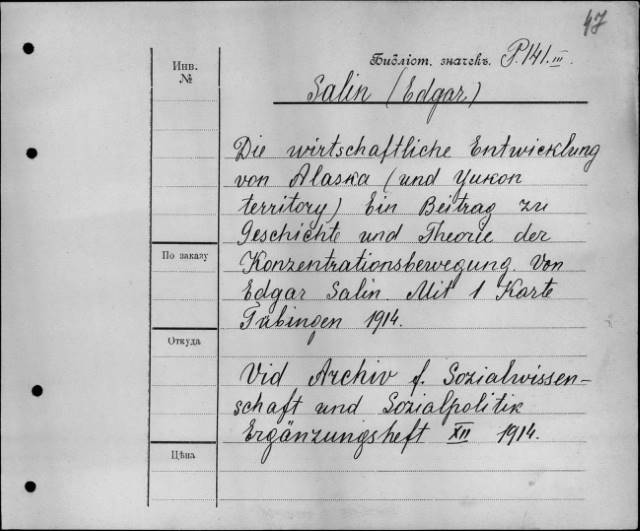 47
Библіот. значекъ. P.141.III.
Инв.
№
Salin (Edgar)
Die wirtschaftliche Entwicklung
von Alaska (und Yukon
territory) Ein Beitrag zu
Geschichte und Theorie der
По заказу
Konzentrationsbewegung. Von
Edgar Salin. Mit 1 Karte
Tübingen 1914.
Откуда
Vid Archiv f. Sozialwissen-
schaft und Sozialpolitik
Ergänzungsheft XII 1914.
Цѣна